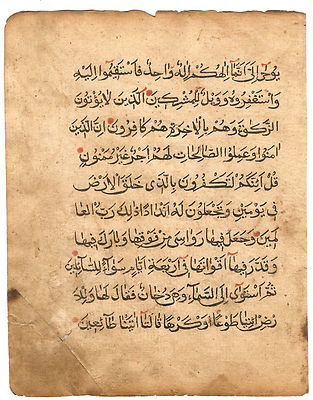 يوحى الى انما الهكم اله واحد فاستقيموا اليه
واستغفروه وويل للمشركين الذين لا يؤتون
الزكوة وهم بالاخرة هم كافرون ان الذين
امنوا وعملوا الصالحات لهم اجر غير ممنون
قل ائنكم لتكفرون بالذى خلق الارض
فى يومين وتجعلون له اندادا ذلك رب العا
لمين وجعل فيها رواسى من فوقها وبارك فيها
وقدر فيها اقواتها فى اربعة ايام سواء للسائلين
ثم استوى الى السماء وهى دخان فقال لها وللا
رض ائتيا طوعا او كرها قالتا اتينا طائعين